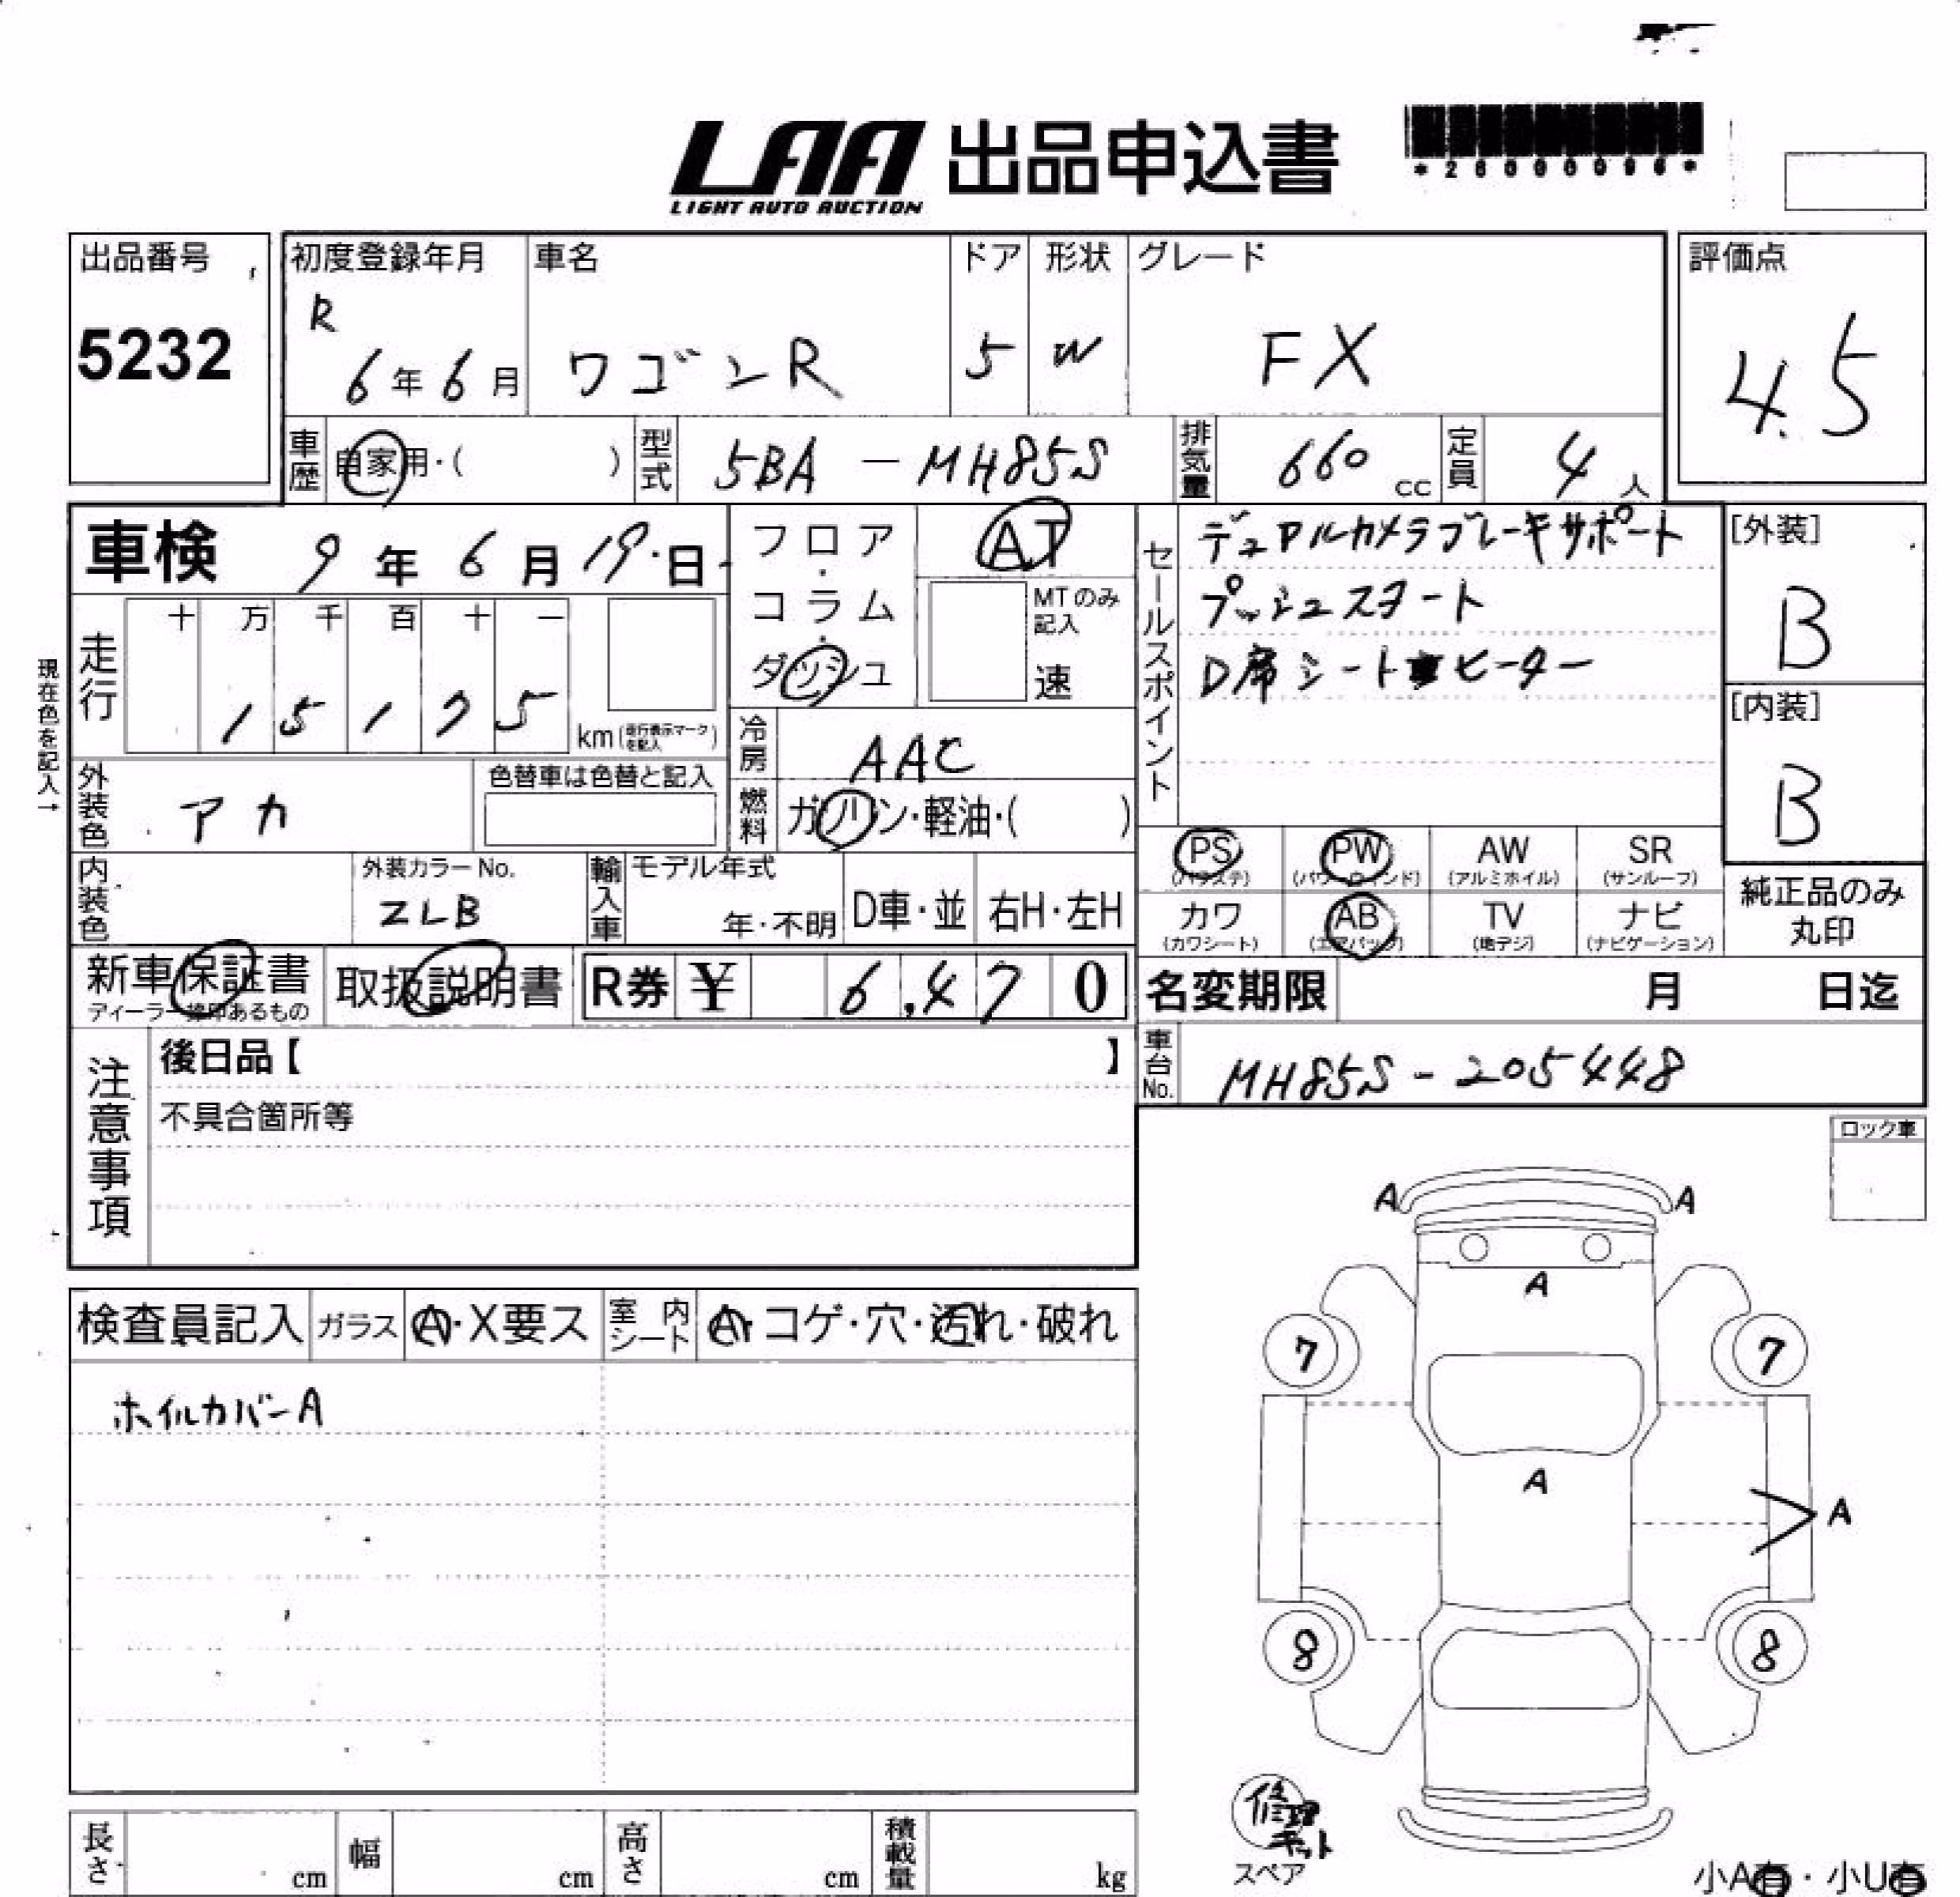 LAA 出品申込書
LIGHT AUTO AUCTION
出品番号
5232
初度登録年月
R
6年6月
車名
ワゴンR
ドア
5
形状
W
グレード
FX
評価点
4.5
車歴
自家用・( )
型式
5BA - MH85S
排気量
660 cc
定員
4人
車検
9年6月19日
フロア・コラム・ダッシュ
AT
MTのみ記入
速
セールスポイント
デュアルカメラブレーキサポート
プッシュスタート
D席シートヒーター
[外装]
B
[内装]
B
現在色を記入→
走行
十 万 千 百 十 一
1 5 1 7 5
km(走行表示マークを記入)
冷房
AAC
燃料
ガソリン・軽油・( )
外装色
アカ
色替車は色替と記入
内装色
外装カラーNo.
ZLB
輸入車
モデル年式
年・不明
D車・並
右H・左H
PS
(パワステ)
PW
(パワーウィンド)
AW
(アルミホイル)
SR
(サンルーフ)
カワ
(カワシート)
AB
(エアバック)
TV
(地デジ)
ナビ
(ナビゲーション)
純正品のみ
丸印
新車保証書
ディーラー捺印あるもの
取扱説明書
R券 ¥ 6,470
名変期限 月 日迄
車台No.
MH85S - 205448
注意事項
後日品【 】
不具合箇所等
ロック車
検査員記入
ガラス
A・X要ス
室内シート
A・コゲ・穴・汚れ・破れ
ホイルカバーA
A A
A
7 7
A
A
8 8
修理キット
スペア
小A有・小U有
長さ cm
幅 cm
高さ cm
積載量 kg